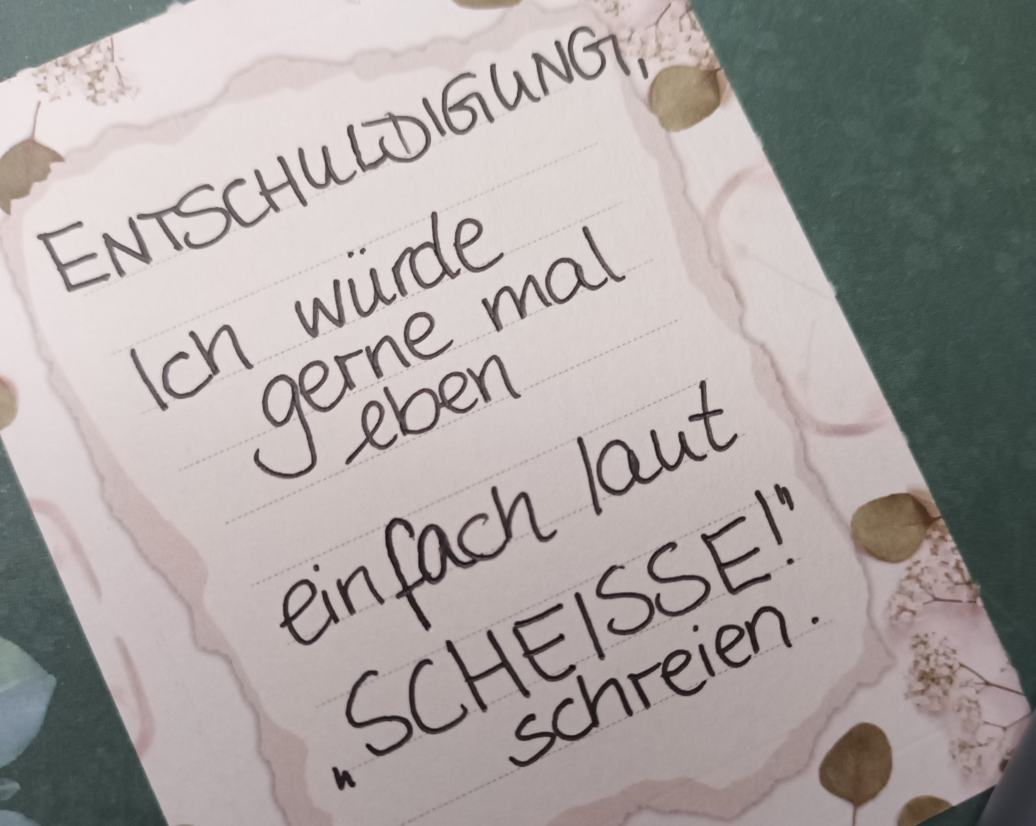 ENTSCHULDIGUNG,
Ich würde
gerne mal
eben
einfach laut
„SCHEISSE!"
schreien.